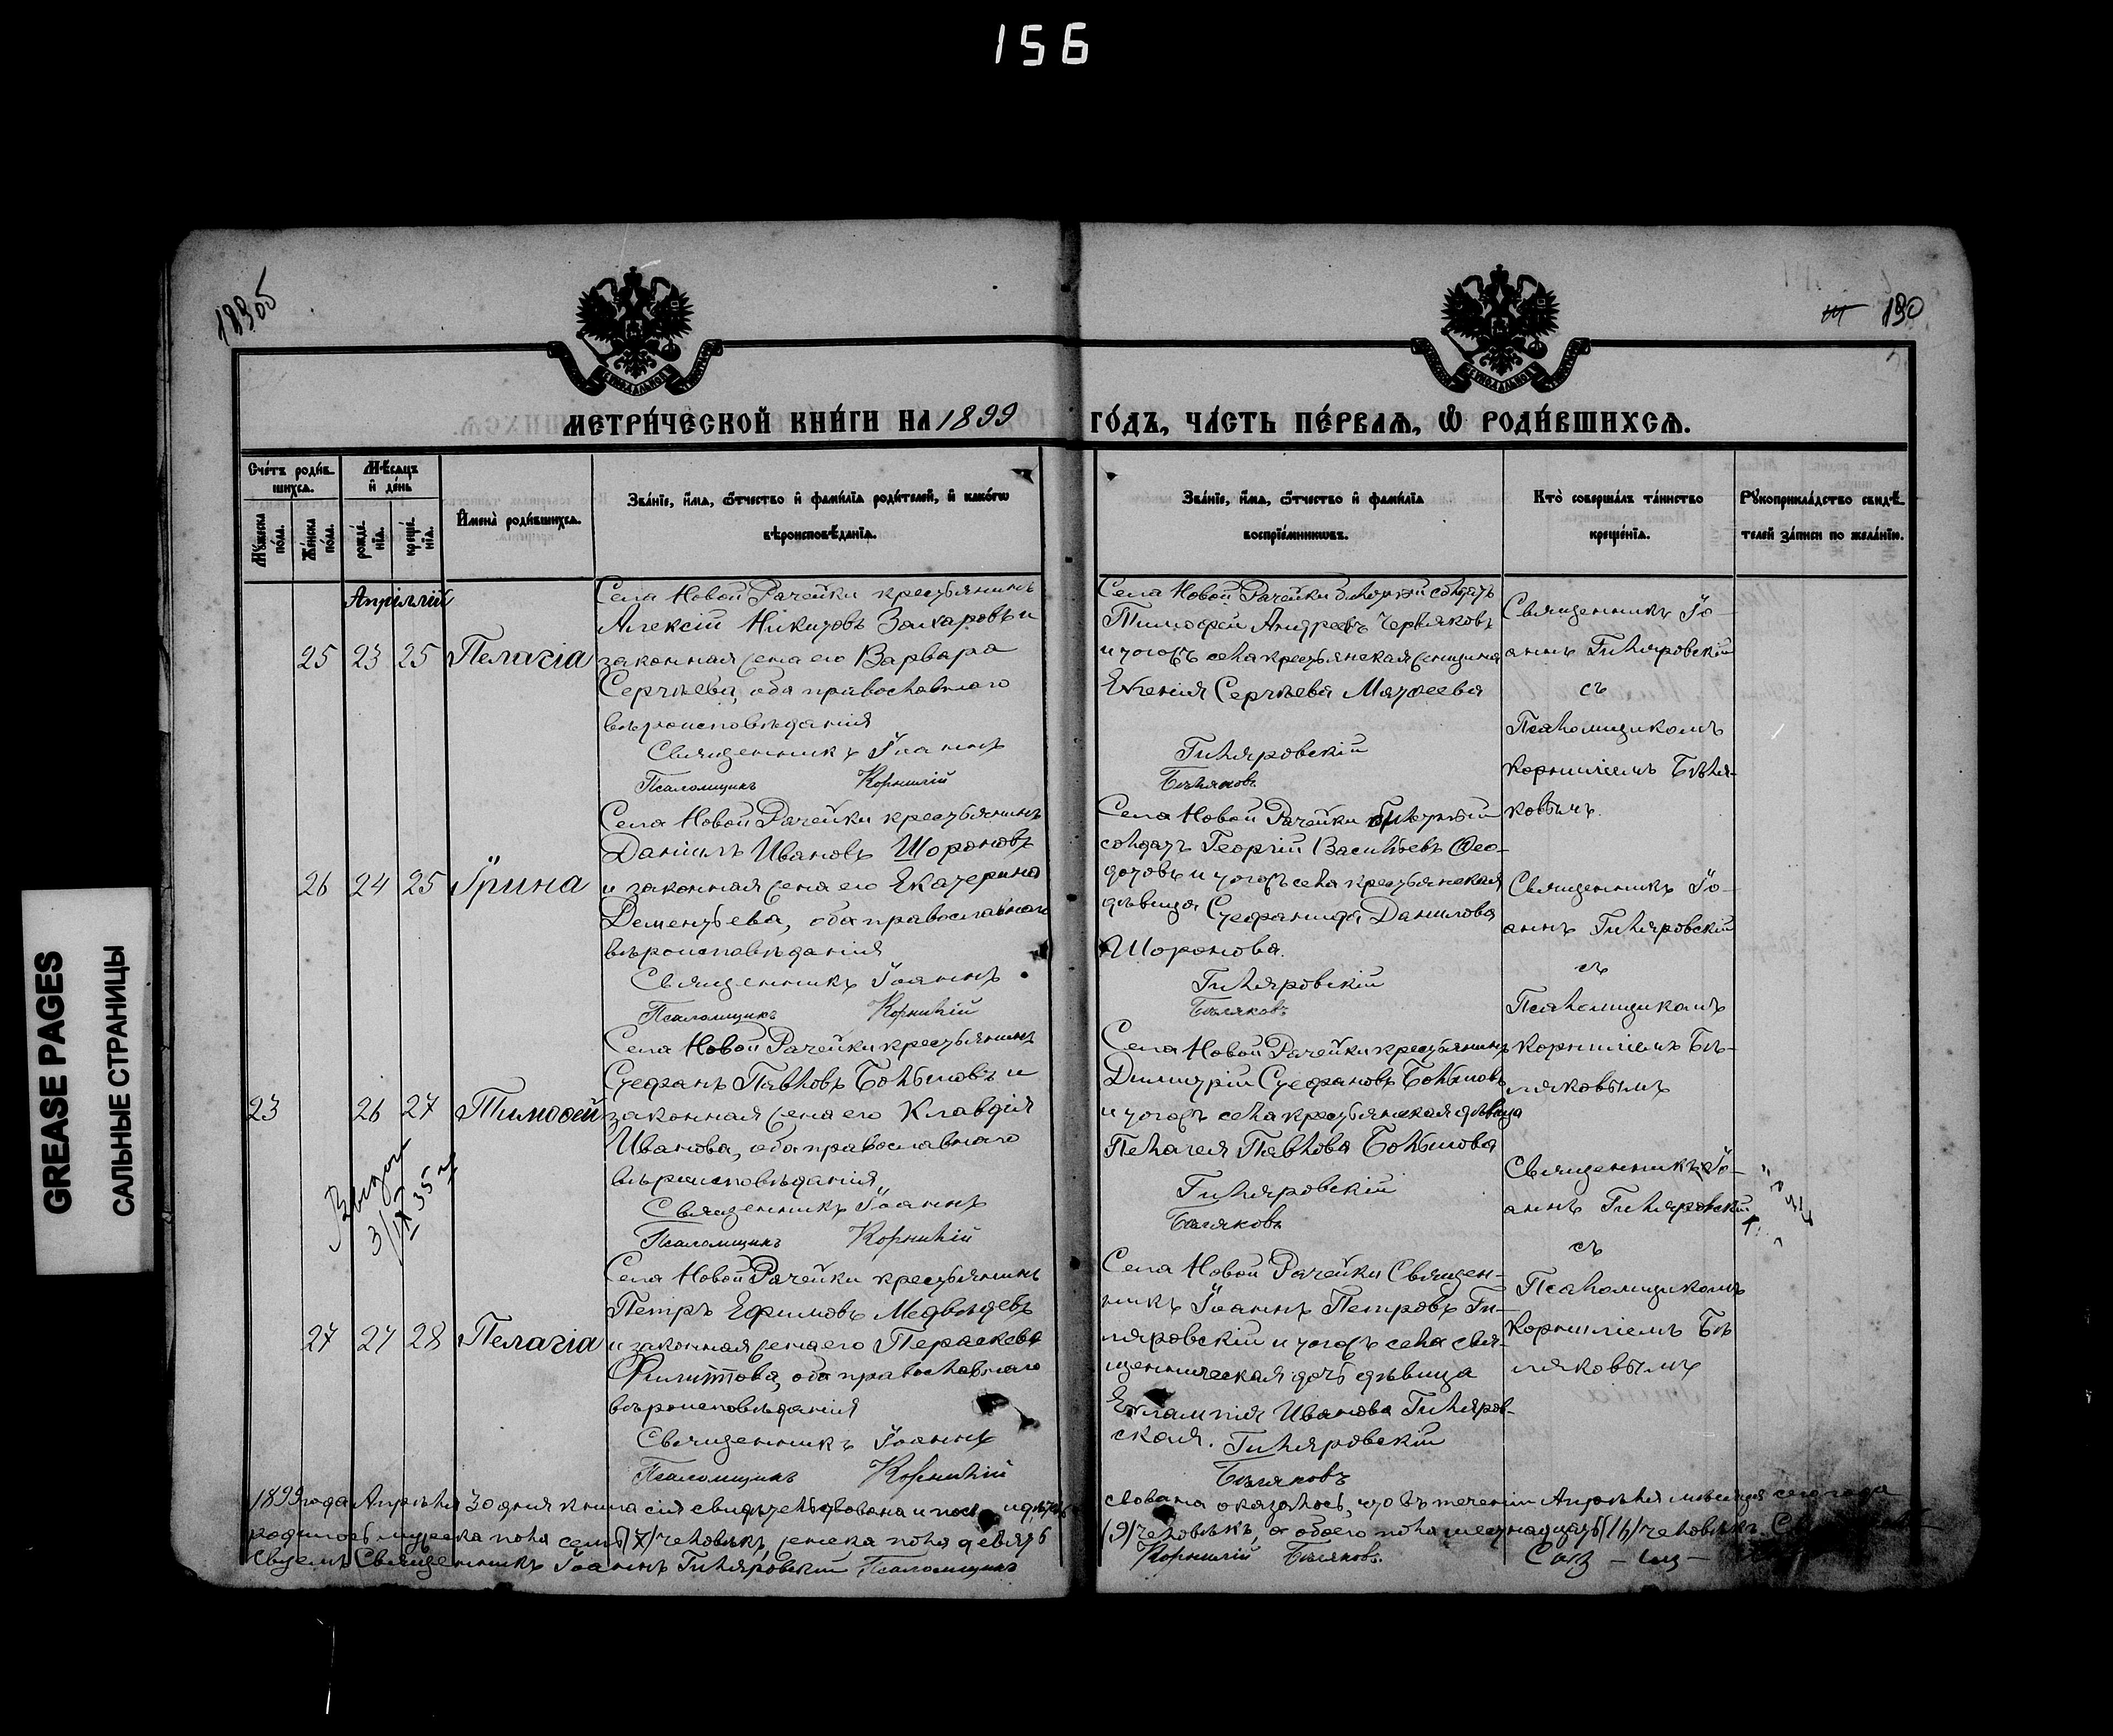 156
190
МЕТРИ́ЧЕСКОЙ КНИ́ГИ НА 1899 ГО́ДЪ, ЧА́СТЬ ПЕ́РВАѦ, Ѿ РОДИ́ВШИХСѦ.
Сче́тъ роди́в-
шихсѧ.
Мѹ́жеска по́ла.
Же́нска по́ла.
Мѣ́сѧцъ
и҆ де́нь
рожде́-
нїѧ.
креще́-
нїѧ.
И҆мена̀ роди́вшихсѧ.
Зва́нїе, и҆́мѧ, ѻ҆́тчество и҆ фами́лїѧ роди́телей, и҆ како́гѡ
вѣроисповѣ́данїѧ.
Зва́нїе, и҆́мѧ, ѻ҆́тчество и҆ фами́лїѧ
воспрїе́мникѡвъ.
Кто̀ соверша́лъ та́инство
креще́нїѧ.
Рꙋкоприкла́дство свидѣ́-
телей за́писи по жела́нїю.
Апрѣлій
25 23 25 Пелагіа
Села Новой Рачейки крестьянинъ
Алексій Никитовъ Захаровъ и
законная жена его Варвара
Сергѣева, оба православнаго
вѣроисповѣданія
Священникъ Іоаннъ
Псаломщикъ Корнилій
Села Новой Рачейки билетный солдатъ
Тимофей Андреевъ Червяковъ
и тогожъ села крестьянская женщина
Евгенія Сергѣева Матѳеева
Гиляровскій
Бѣляковъ
Священникъ Іо-
аннъ Гиляровскій
съ
Псаломщикомъ
Корниліемъ Бѣля-
ковымъ.
26 24 25 Ірина
Села Новой Рачейки крестьянинъ
Даніилъ Ивановъ Шороновъ
и законная жена его Екатерина
Дементьева, оба православнаго
вѣроисповѣданія
Священникъ Іоаннъ
Псаломщикъ Корнилій
Села Новой Рачейки билетный
солдатъ Георгій Васильевъ Ѳео-
дотовъ и тогожъ села крестьянская
дѣвица Стефанида Данилова
Шоронова.
Гиляровскій
Бѣляковъ
Священникъ Іо-
аннъ Гиляровскій
съ
Псаломщикомъ
Корниліемъ Бѣ-
ляковымъ
23 26 27 Тимоѳей
Села Новой Рачейки крестьянинъ
Стефанъ Павловъ Болбиловъ и
законная жена его Клавдія
Иванова, оба православнаго
вѣроисповѣданія
Священникъ Іоаннъ
Псаломщикъ Корнилій
Села Новой Рачейки крестьянинъ
Димитрій Стефановъ
и тогожъ села крестьянская дѣвица
Пелагея Павлова
Гиляровскій
Бѣляковъ
Священникъ Іо-
аннъ Гиляровскій
съ
Псаломщикомъ
Корниліемъ Бѣ
ляковымъ
3/IX 35 г
27 27 28 Пелагіа
Села Новой Рачейки крестьянинъ
Петръ Ефимовъ Медвѣдевъ
и законная жена его Параскева
Филиппова, оба православнаго
вѣроисповѣданія
Священникъ Іоаннъ
Псаломщикъ Корнилій
Села Новой Рачейки Священ-
никъ Іоаннъ Петровъ Ги-
ляровскій и тогожъ села свя-
щенническая дочь дѣвица
Евлампія Иванова Гиляров-
ская. Гиляровскій
Бѣляковъ
1899 года Апрѣля 30 дня книга сія свидѣтельствована и
оказалось, что въ теченіи Апрѣля мѣсяца сего года
родилось мужеска пола семь /7/ человѣкъ, женска пола девять
/9/ человѣкъ, а обоего пола шестнадцать /16/ человѣкъ.
Священникъ Іоаннъ Гиляровскій Псаломщикъ
Корнилій Бѣляковъ.
GREASE PAGES
САЛЬНЫЕ СТРАНИЦЫ